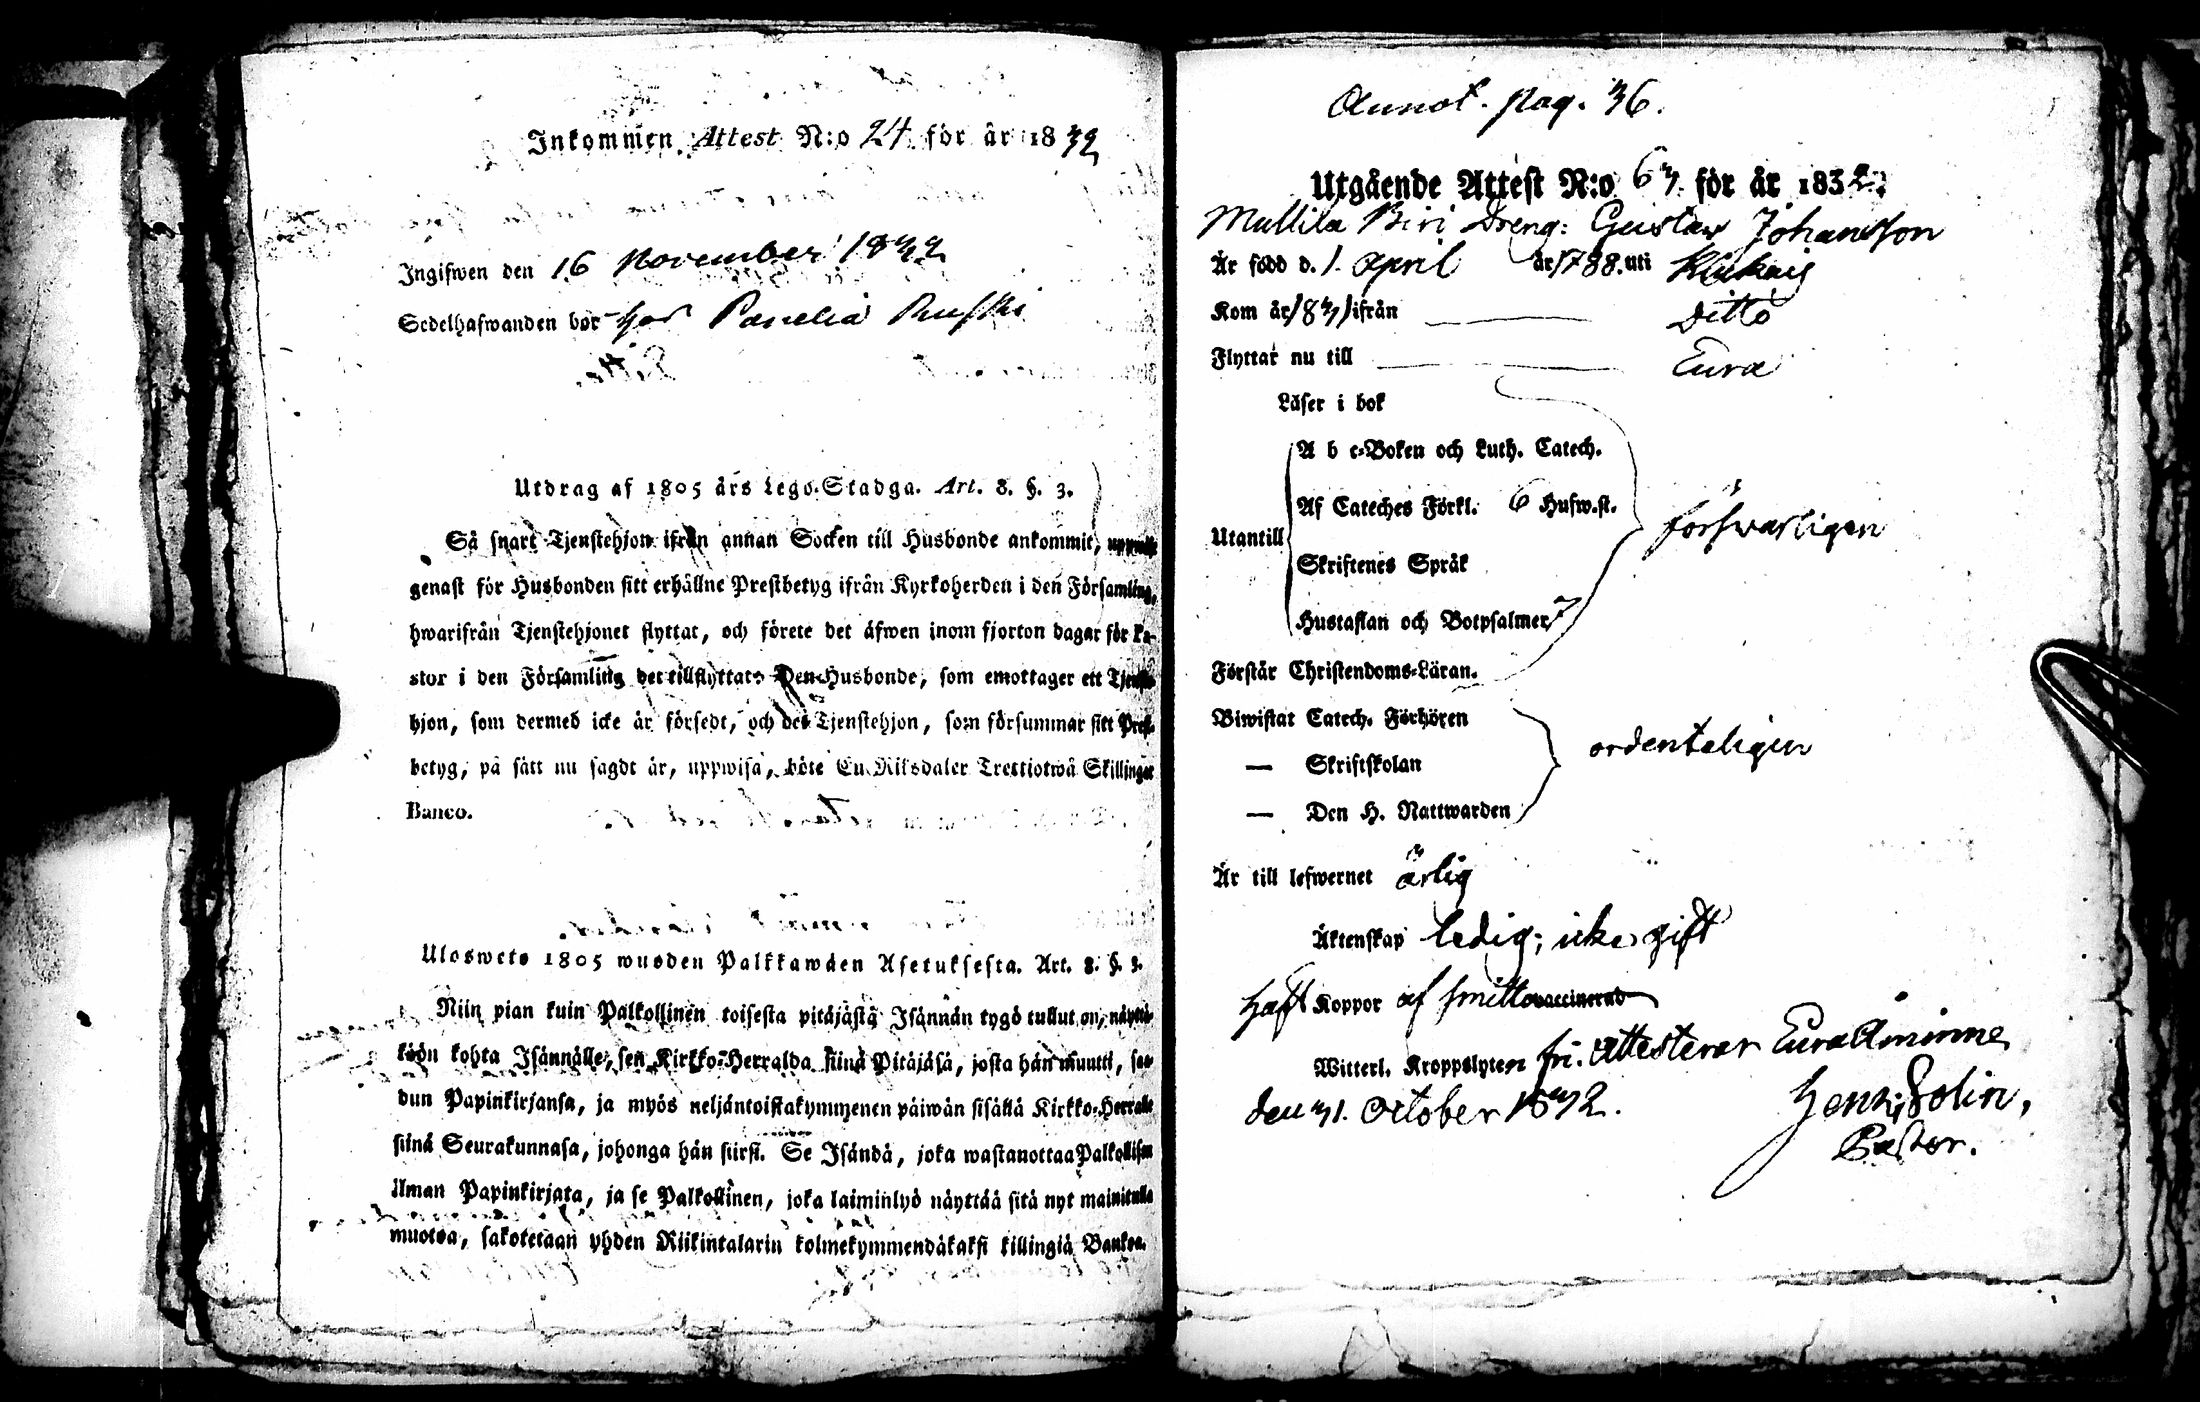 Inkommen Attest N:o 24 för år 1832
Ingifwen den 16 November 1832
Sedelhafwanden bor hos Panelia
Utdrag af 1805 års Lego-Stadga. Art. 8. §. 3.
Så snart Tjenstehjon ifrån annan Socken till Husbonde ankommit,
genast för Husbonden sitt erhållne Prestbetyg ifrån Kyrkoherden i den Församling,
hwarifrån Tjenstehjonet flyttat, och förete det äfwen inom fjorton dagar för Pa-
stor i den Församling det tillflyttat. Den Husbonde, som emottager ett Tjenste-
hjon, som dermed icke är försedt, och det Tjenstehjon, som försummar sitt Prest-
betyg, på sätt nu sagdt är, uppwisa, böte En Riksdaler Trettiotwå Skillingar
Banco.
Ulosweto 1805 wuoden Palkkawäen Asetuksesta. Art. 8. §. 3.
Niin pian kuin Palkollinen toisesta pitäjästä Isännän tygö tullut on, näyttä-
köön kohta Isännälle, sen Kirkko-Herralda siinä Pitäjäsä, josta hän muutti, saa-
dun Papinkirjansa, ja myös neljäntoistakymmenen päiwän sisällä Kirkko-Herralle
siinä Seurakunnasa, johonga hän siirsi. Se Isändä, joka wastanottaa Palkollisen
ilman Papinkirjata, ja se Palkollinen, joka laiminlyö näyttää sitä nyt mainitulla
muotoa, sakotetaan yhden Riikintalarin kolmekymmendäkaksi killingiä Bankoa.
Annot. pag. 36.
Utgående Attest N:o 63 för år 1832
Mullila Piri Dreng: Gustav Johansson
Är född d. 1. April år 1788. uti Kiukais
Kom år 1831 ifrån Ditto
Flyttar nu till Eura
Läser i bok
A b c-Boken och Luth. Catech.
Af Cateches Förkl. 6 Hufw.st.
Utantill
Skriftenes Språk
Hustaflan och Botpsalmer 7
försvarligen
Förstår Christendoms-Läran.
Biwistat Catech. Förhören
— Skriftskolan
— Den H. Nattwarden
ordenteligen
Är till lefwernet ärlig
Äktenskap ledig; icke gift
Haft Koppor af smitto vaccinerad
Witterl. Kroppslyten fri. Attesterar Euraåminne
den 31. October 1832.
Henr: Solin,
Pastor.